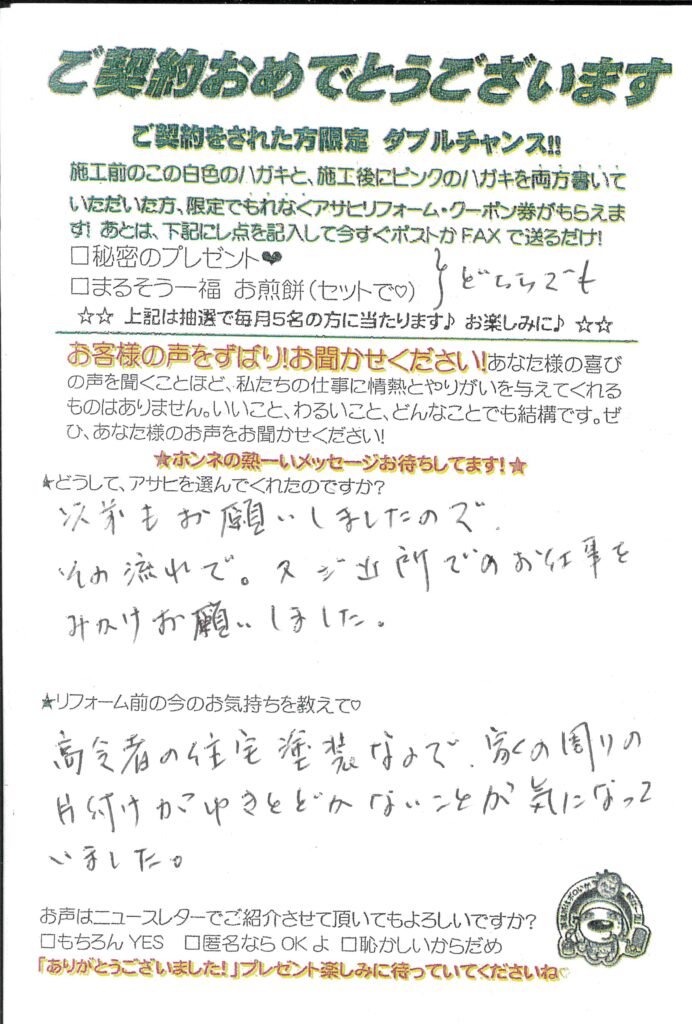 ご契約おめでとうございます
ご契約をされた方限定 ダブルチャンス!!
施工前のこの白色のハガキと、施工後にピンクのハガキを両方書いて
いただいた方、限定でもれなくアサヒリフォーム・クーポン券がもらえま
す! あとは、下記にし点を記入して今すぐポストかFAXで送るだけ!
□秘密のプレゼント♥
□まるそう一福 お煎餅(セットで♡)
どちらでも
☆☆ 上記は抽選で毎月5名の方に当たります♪ お楽しみに♪ ☆☆
お客様の声をずばり!お聞かせください!あなた様の喜び
の声を聞くことほど、私たちの仕事に情熱とやりがいを与えてくれる
ものはありません。いいこと、わるいこと、どんなことでも結構です。ぜ
ひ、あなた様のお声をお聞かせください!
★ホンネの熱ーいメッセージお待ちしてます!★
★どうして、アサヒを選んでくれたのですか?
以前もお願いしましたので、
その流れで。又ご近所でのお仕事を
みかけお願いしました。
★リフォーム前の今のお気持ちを教えて♡
高令者の住宅塗装なので、家の周りの
片付けがゆきとどかないことが気になって
いました。
お声はニュースレターでご紹介させて頂いてもよろしいですか?
□もちろんYES □匿名ならOKよ □恥かしいからだめ
「ありがとうございました!」プレゼント楽しみに待っていてくださいね♡